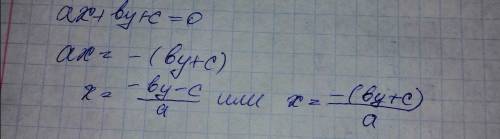 ax+by+c=0
ax= -(by+c)
x= -by-c/a или x= -(by+c)/a